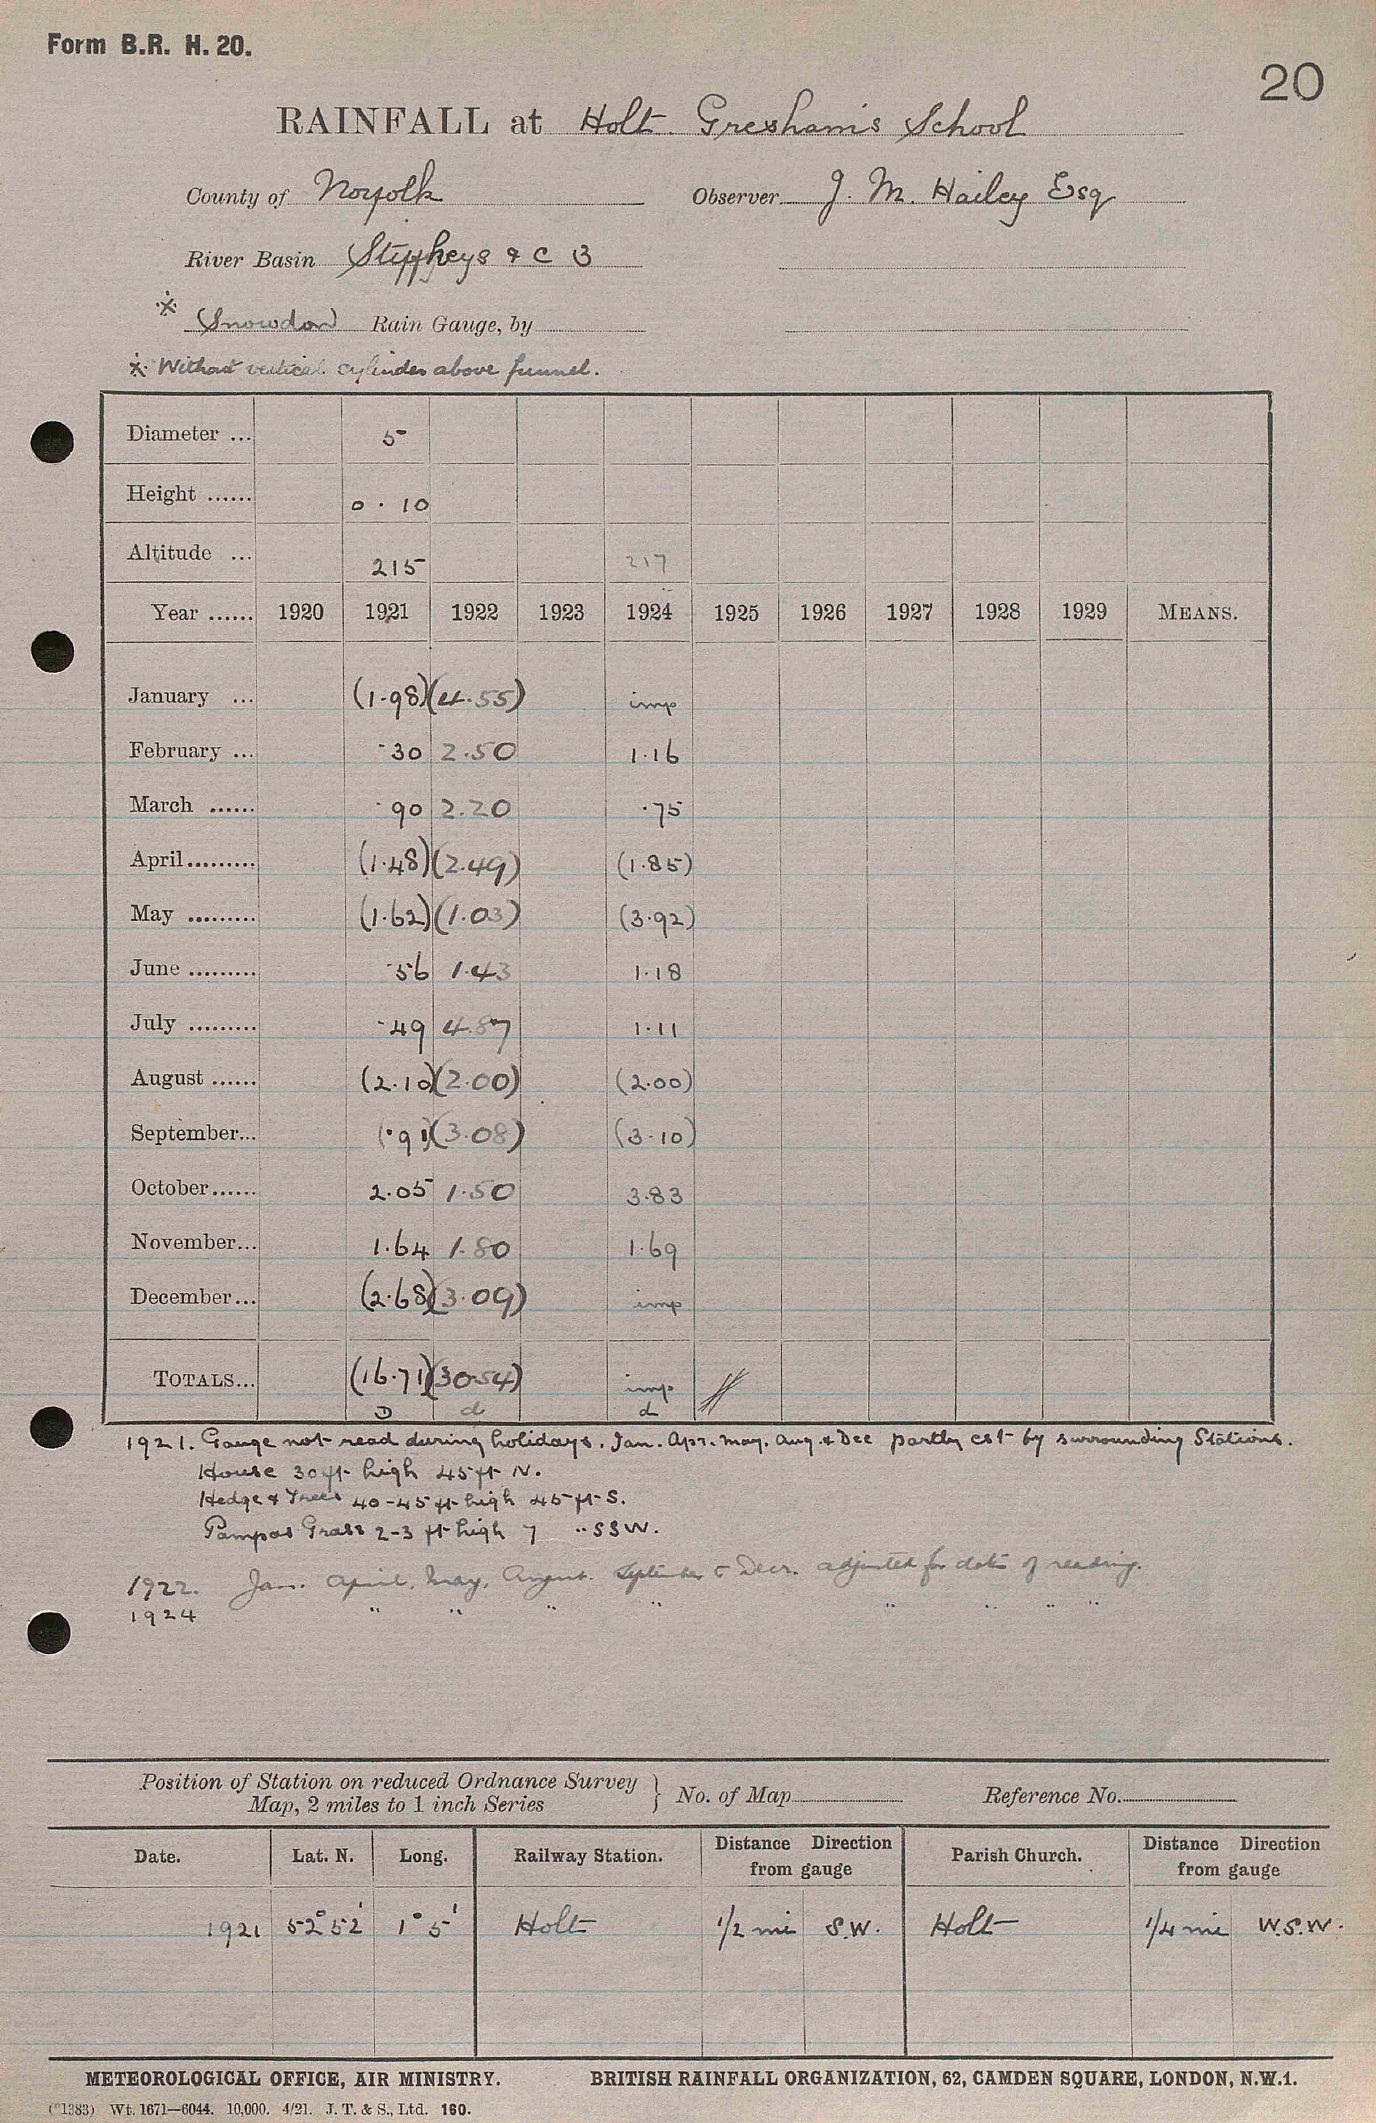 Form B.R. H. 20.
20
RAINFALL at Holt. Gresham's School
County of Norfolk Observer J. M. Hailey Esq
River Basin Stiffkeys & C B
※ (Snowdon) Rain Gauge, by
※ Without vertical cylinder above funnel.
Diameter ... 5
Height ...... 0 . 10
Altitude ... 215 217
Year ...... 1920 1921 1922 1923 1924 1925 1926 1927 1928 1929 MEANS.
January ... (1.98) (4.55) imp
February ... .30 2.50 1.16
March ...... .90 2.20 .75
April......... (1.48) (2.49) (1.85)
May ......... (1.62) (1.03) (3.92)
June ......... .56 1.43 1.18
July ......... .49 4.87 1.11
August ...... (2.10) (2.00) (2.00)
September... (.91) (3.08) (3.10)
October...... 2.05 1.50 3.83
November... 1.64 1.80 1.69
December... (2.68) (3.09) imp
TOTALS... (16.71) (30.54) imp
D d d
1921. Gauge not read during holidays. Jan. Apr. May. Aug. & Dec partly est by surrounding Stations.
House 30ft high 45ft N.
Hedge & Trees 40-45 ft high 45 ft S.
Pampas Grass 2-3 ft high 7 " SSW.
1922. Jan. April, May, August. September & Decr. adjusted for date of reading.
1924 " " " " " " " "
Position of Station on reduced Ordnance Survey
Map, 2 miles to 1 inch Series } No. of Map Reference No.
Date. Lat. N. Long. Railway Station. Distance Direction from gauge Parish Church. Distance Direction from gauge
1921 52° 52' 1° 5' Holt 1/2 mi S.W. Holt 1/4 mi W.S.W.
METEOROLOGICAL OFFICE, AIR MINISTRY. BRITISH RAINFALL ORGANIZATION, 62, CAMDEN SQUARE, LONDON, N.W.1.
(*1383) Wt. 1671—6044. 10,000. 4/21. J. T. & S., Ltd. 160.